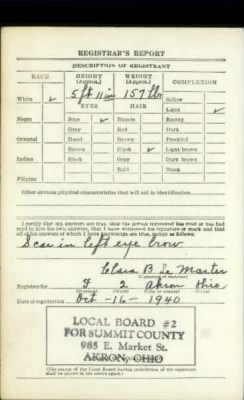 REGISTRAR'S REPORT
DESCRIPTION OF REGISTRANT
RACE HEIGHT (Approx.) WEIGHT (Approx.) COMPLEXION
White ✓ 5 ft 11 in 157 lbs Sallow
EYES HAIR Light ✓
Negro Blue ✓ Blonde Ruddy
Gray Red Dark
Oriental Hazel Brown Freckled
Brown Black ✓ Light brown
Indian Black Gray Dark brown
Bald Black
Filipino
Other obvious physical characteristics that will aid in identification
I certify that my answers are true; that the person registered has read or has had
read to him his own answers; that I have witnessed his signature or mark and that
all of his answers of which I have knowledge are true, except as follows:
Scar in left eye brow
Clara B. Le Master
(Signature of registrar)
Registrar for F 2 Akron Ohio
Date of registration Oct-16-1940
LOCAL BOARD #2
FOR SUMMIT COUNTY
985 E. Market St.
AKRON, OHIO
(The stamp of the Local Board having jurisdiction of the registrant
shall be placed in the above space.)